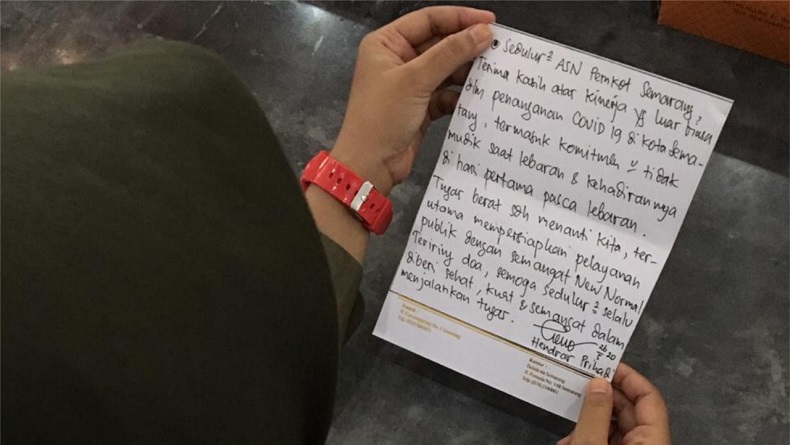 Sedulur² ASN Pemkot Semarang,
Terima kasih atas kinerja yg luar biasa
dlm penanganan COVID 19 di kota Sema-
rang, termasuk komitmen u/ tidak
mudik saat lebaran & kehadirannya
di hari pertama pasca lebaran.
Tugas berat sdh menanti kita, ter-
utama mempersiapkan pelayanan
publik dengan semangat New Normal
Teriring doa, semoga sedulur² selalu
diberi sehat, kuat & semangat dalam
menjalankan tugas.
Hendrar Prihadi
Kantor :
Balaikota Semarang
Jl. Pemuda No. 148 Semarang